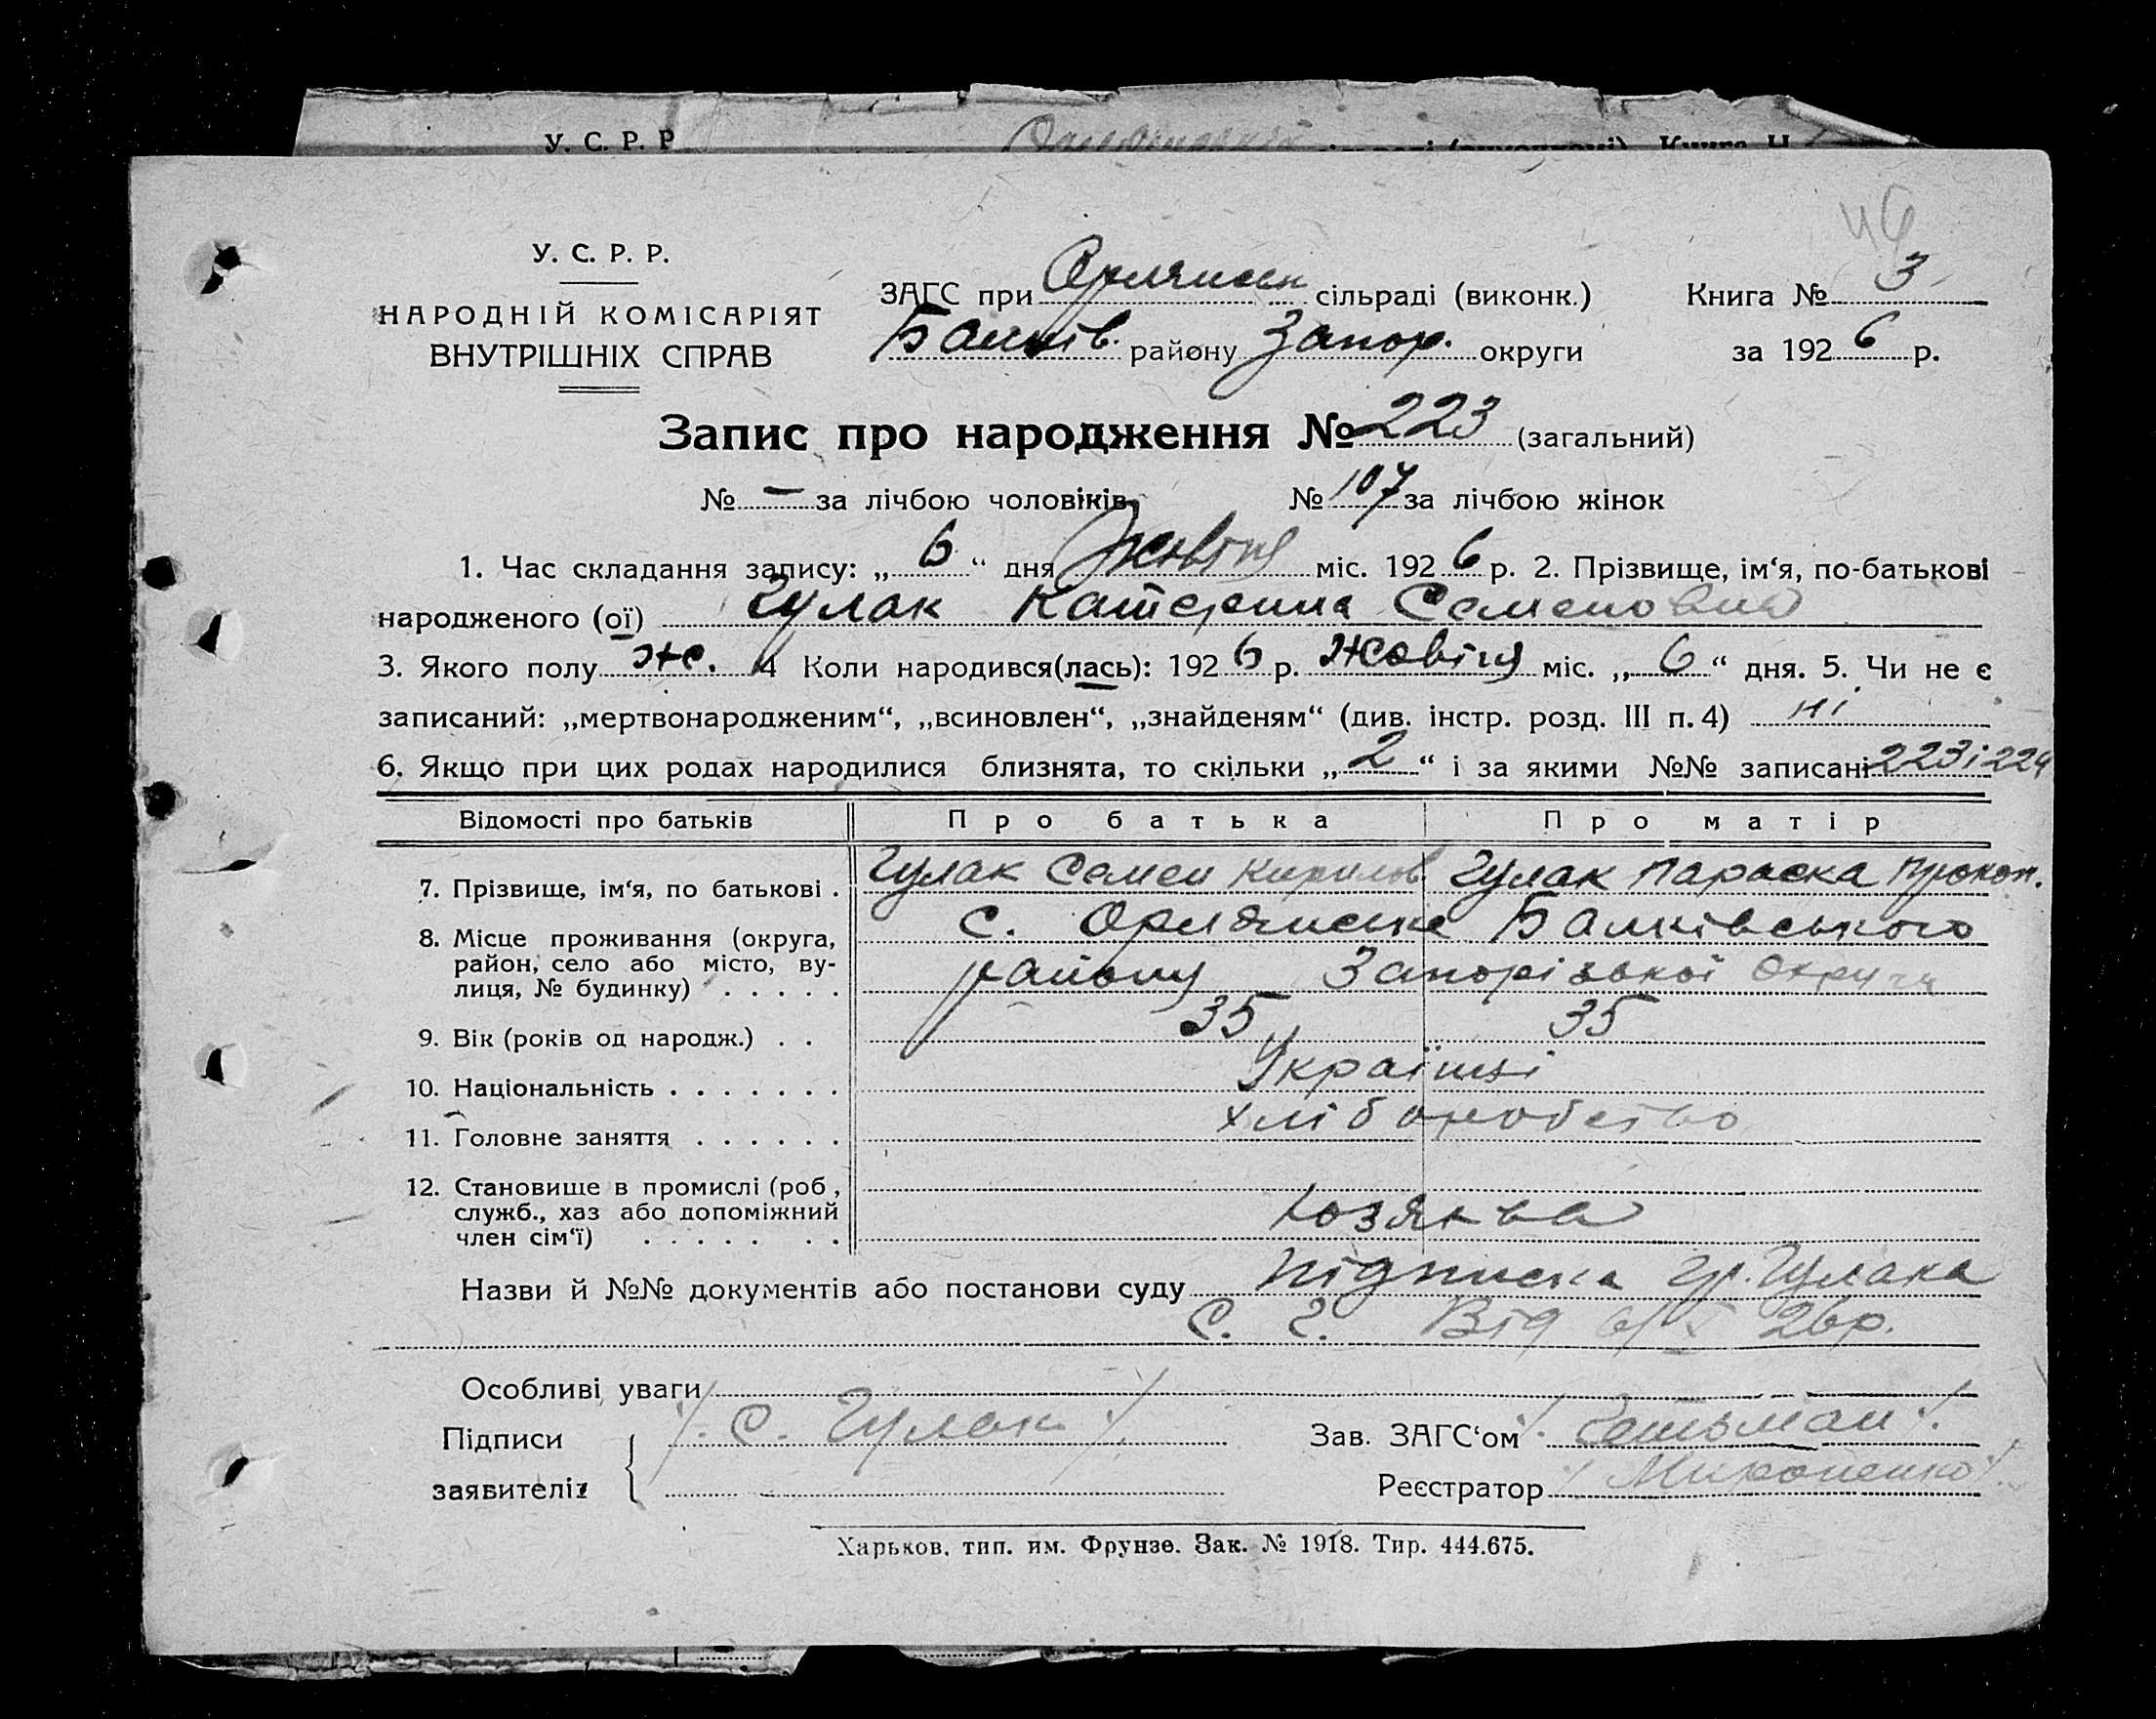 У. С. Р. Р
46
У. С. Р. Р.
НАРОДНІЙ КОМІСАРІЯТ
ВНУТРІШНІХ СПРАВ
ЗАГС при Орлянсен сільраді (виконк.) Книга № 3
Балків. району Запор. округи за 1926 р.
Запис про народження № 223 (загальний)
№ – за лічбою чоловіків № 107 за лічбою жінок
1. Час складання запису: „ 6 “ дня Жовтня міс. 1926 р. 2. Прізвище, ім‘я, по-батькові
народженого (ої) Гулак Катерина Семеновна
3. Якого полу ж. 4 Коли народився(лась): 1926 р. Жовтня міс. „ 6 “ дня. 5. Чи не є
записаний: „мертвонародженим“, „всиновлен“, „знайденям“ (див. інстр. розд. III п. 4) ні
6. Якщо при цих родах народилися близнята, то скільки „ 2 “ і за якими №№ записані 223 і 224
Відомості про батьків Про батька Про матір
7. Прізвище, ім‘я, по батькові . Гулак Семен Кирилов Гулак Параска Прокоп.
8. Місце проживання (округа, район, село або місто, вулиця, № будинку) . . . . . с. Орлянське Балківського
району Запорізької округи
9. Вік (років од народж.) . . 35 35
10. Національність . . . . . . . Українці
11. Головне заняття . . . . . . хліборобство
12. Становище в промислі (роб, служб., хаз або допоміжний член сім‘ї) . . . . . . . хозяева
Назви й №№ документів або постанови суду підписка гр. Гулака
С. г. Від 6/X 26р.
Особливі уваги
Підписи /. С. Гулак /. Зав. ЗАГС‘ом /. Гетьман /.
заявителів Реєстратор / Мироненко /.
Харьков, тип. им. Фрунзе. Зак. № 1918. Тир. 444.675.